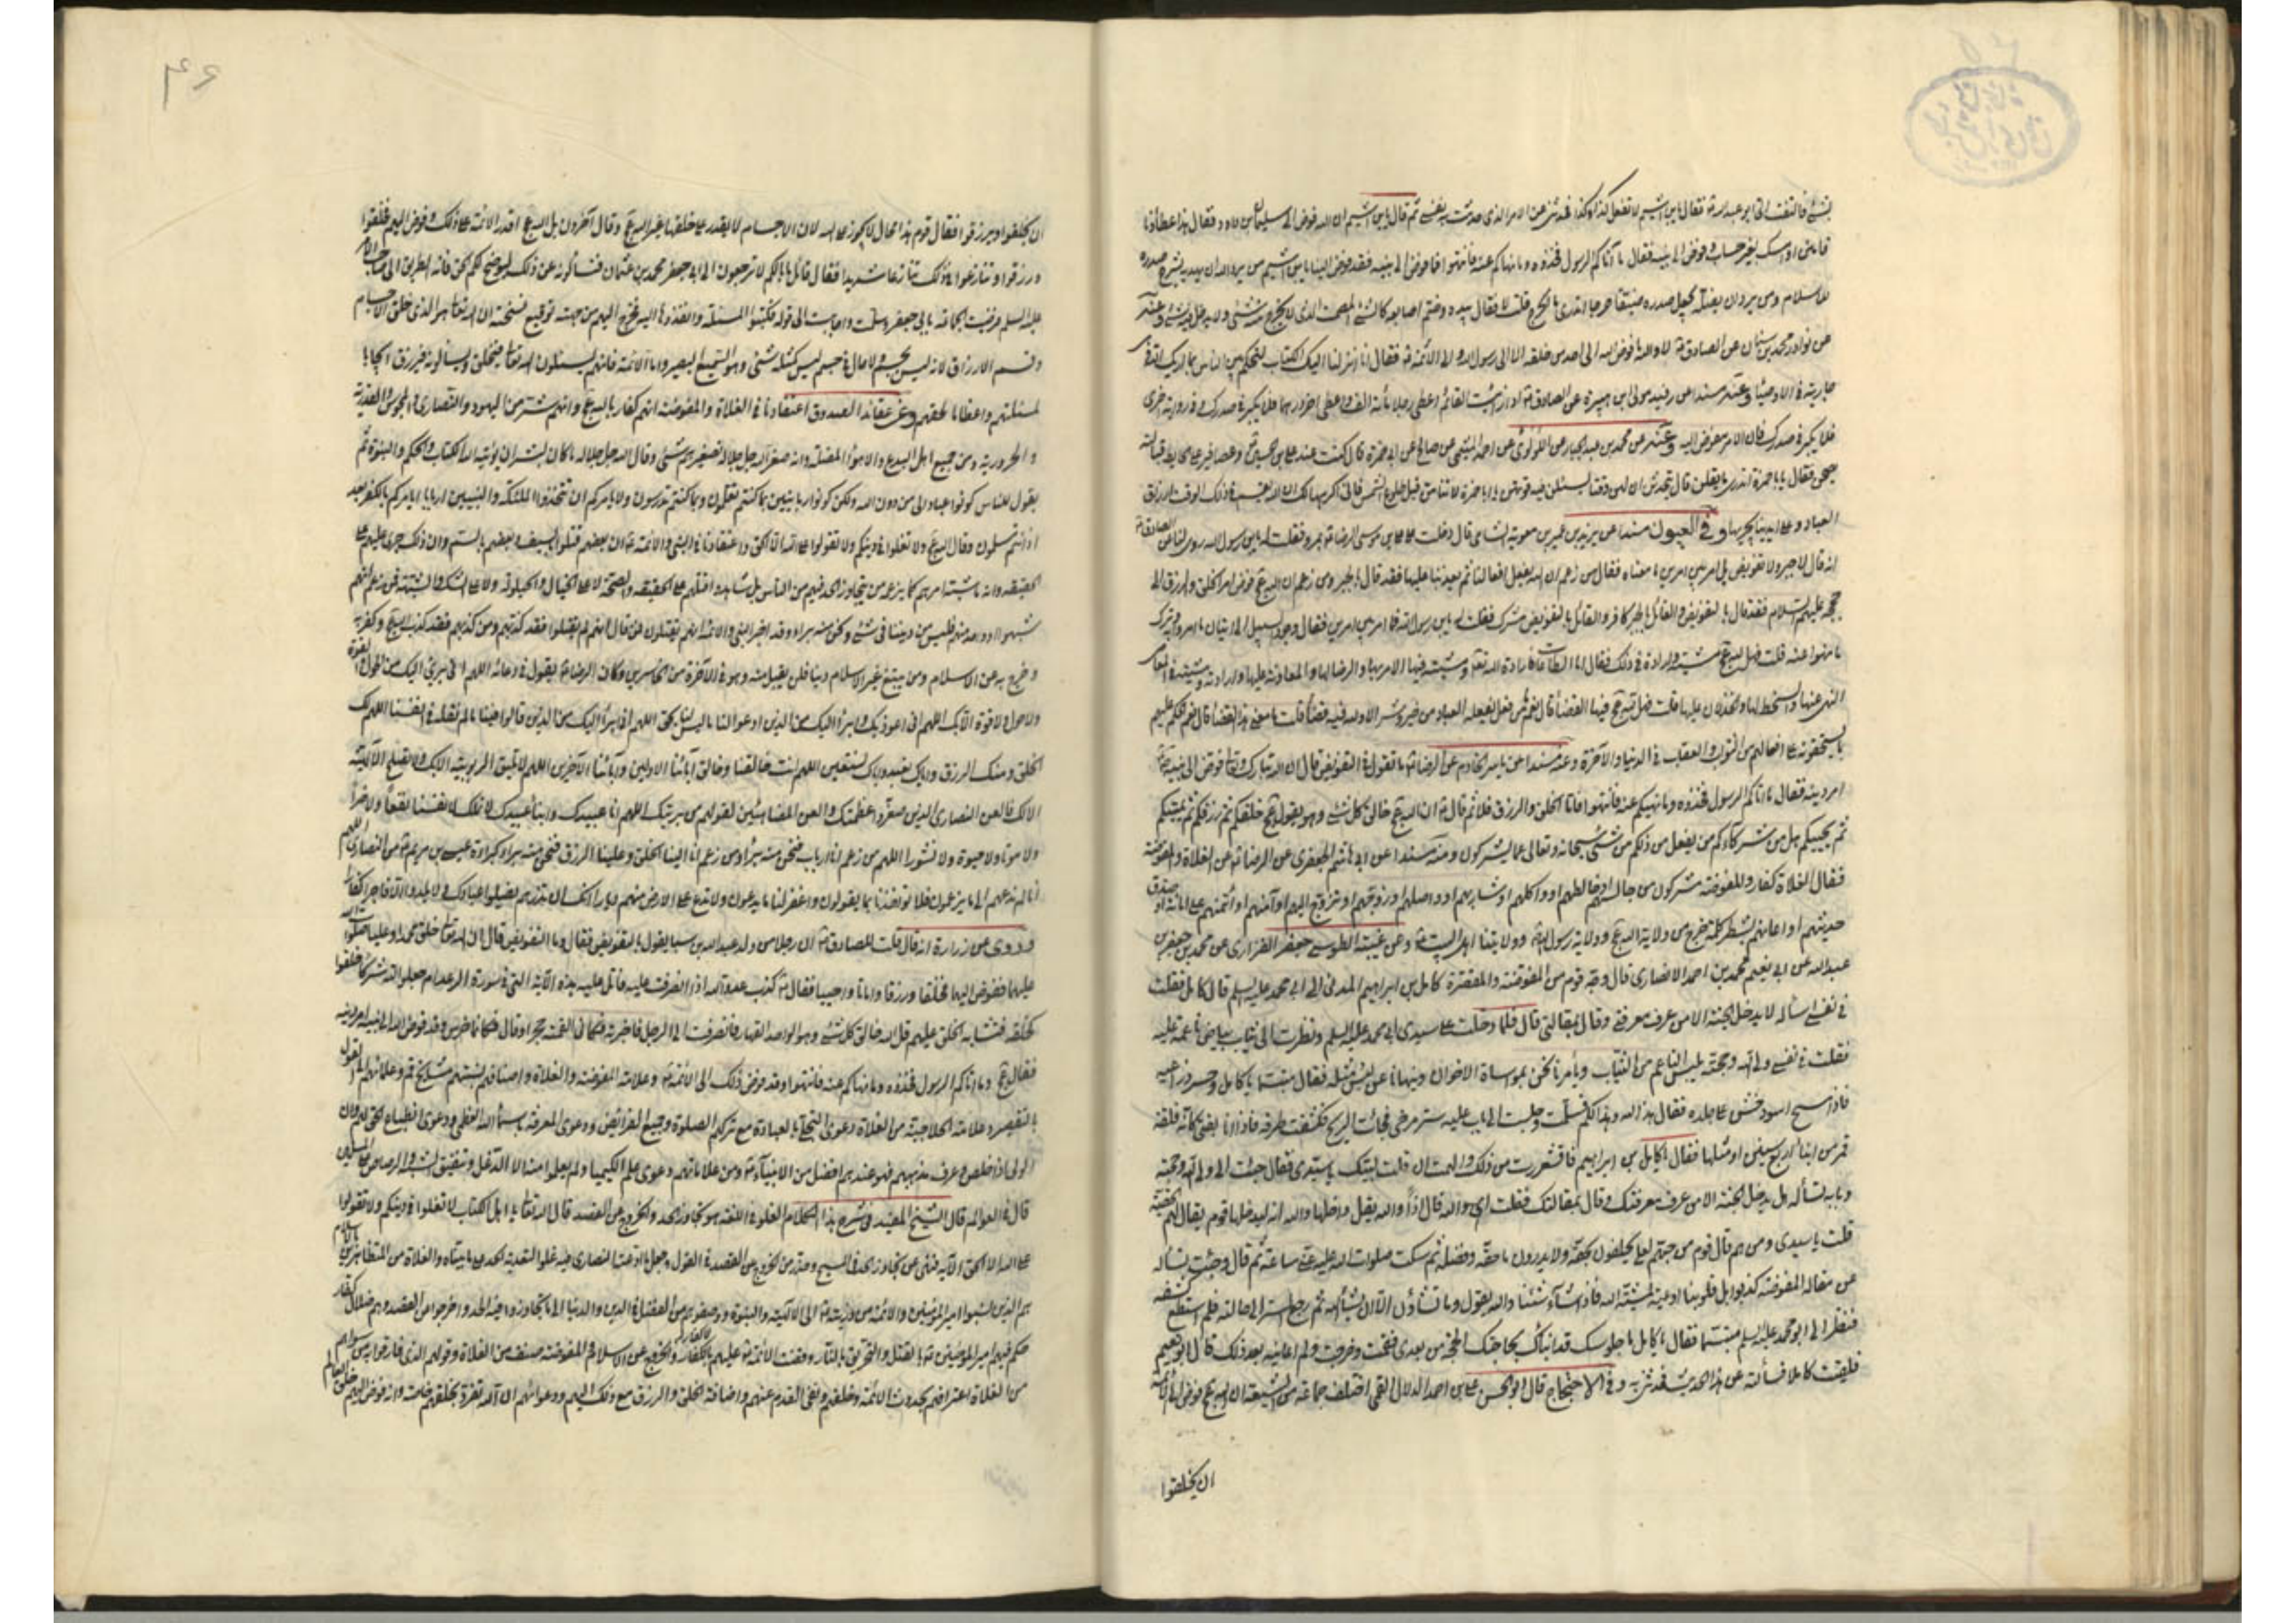 بشئ فالتفت الى ابو عبد الله ع فقال يا بن اشيم لا تفعل كذا وكذا فحدثني عن الامر الذي حدثت به نفسي ثم قال يا بن اشيم ان الله فوض الى سليمان بن داود فقال هذا عطاؤنا
فامنن او امسك بغير حساب وفوض الى نبيه فقال ما آتاكم الرسول فخذوه وما نهاكم عنه فانتهوا فما فوض الى نبيه فقد فوض الينا يا بن اشيم من يرد الله ان يهديه يشرح صدره
للاسلام ومن يرد ان يضله يجعل صدره ضيقا حرجا اتدري ما الحرج قلت لا فقال بيده وضم اصابعه كالشئ المصمت الذي لا يخرج منه شئ ولا يدخل فيه شئ وعنه
من نوادر محمد بن سنان عن الصادق ع لا والله ما فوض الله الى احد من خلقه الا الى رسول الله والى الائمة ع فقال انا انزلنا اليك الكتاب لتحكم بين الناس بما اريك الله
جارية في الاوصياء وعنه مسندا عن رفيد مولى ابن هبيرة عن الصادق ع اذا رايت القائم اعطى رجلا مائة الف واعطى اخر درهما فلا يكبر في صدرك وفي رواية اخرى
فلا يكبر في صدرك فان الامر مفوض اليه وعنه عن محمد بن عبد الجبار عن اللؤلؤي عن احمد الميثمي عن صالح عن ابي حمزة قال كنت عند علي بن الحسين ع وعصافير على الحايط قبالته
يصحن فقال يا با حمزة اتدري ما يقلن قال يتحدثن ان لهن وقتا يسئلن فيه قوتهن يا با حمزة لا تنامن قبل طلوع الشمس فاني اكرهها لك ان الله يقسم في ذلك الوقت ارزاق
العباد وعلى ايدينا يجريها وفي العيون مسندا عن يزيد بن عمير بن معوية الشامي قال دخلت على علي بن موسى الرضا ع بمرو فقلت له يا بن رسول الله روى لنا عن الصادق ع
انه قال لا جبر ولا تفويض بل امر بين امرين ما معناه فقال من زعم ان الله يفعل افعالنا ثم يعذبنا عليها فقد قال بالجبر ومن زعم ان الله عج فوض امر الخلق والرزق الى
حججه عليهم السلام فقد قال بالتفويض والقائل بالجبر كافر والقائل بالتفويض مشرك فقلت له يا بن رسول الله فما امر بين امرين فقال وجود السبيل الى اتيان ما امروا وترك
ما نهوا عنه قلت فهل لله عج مشية وارادة في ذلك فقال اما الطاعات فارادة الله تعالى ومشيته فيها الامر بها والرضا لها والمعاونة عليها وارادته ومشيته في المعاصي
النهي عنها والسخط لها والخذلان عليها قلت فهل لله عج فيها القضاء قال نعم ما من فعل يفعله العباد من خير وشر الا ولله فيه قضاء قلت ما معنى هذا القضاء قال نعم الحكم عليهم
بما يستحقونه على افعالهم من الثواب والعقاب في الدنيا والآخرة وعنه مسندا عن ياسر الخادم عن الرضا ع ما تقول في التفويض قال ان الله تبارك وتعالى فوض الى نبيه ص
امر دينه فقال ما آتاكم الرسول فخذوه وما نهيكم عنه فانتهوا فاما الخلق والرزق فلا ثم قال ع ان الله عج خالق كل شئ وهو يقول عج خلقكم ثم رزقكم ثم يميتكم
ثم يحييكم هل من شركائكم من يفعل من ذلكم من شئ سبحانه وتعالى عما يشركون ومنه مسندا عن ابي هاشم الجعفري عن الرضا ع عن الغلاة والمفوضة
فقال الغلاة كفار والمفوضة مشركون من جالسهم او خالطهم او واكلهم او شاربهم او واصلهم او زوجهم او تزوج اليهم او آمنهم او ائتمنهم على امانة او صدق
حديثهم او اعانهم بشطر كلمة خرج من ولاية الله عج وولاية رسول الله ص وولايتنا اهل البيت ع وعن غيبة الطوسي جعفر الفزاري عن محمد بن جعفر بن
عبد الله عن ابي نعيم محمد بن احمد الانصاري قال وجه قوم من المفوضة والمقصرة كامل بن ابراهيم المدني الى ابي محمد عليه السلم قال كامل فقلت
في نفسي اساله لا يدخل الجنة الا من عرف معرفتي وقال بمقالتي قال فلما دخلت على سيدي ابي محمد عليه السلم ونظرت الى ثياب بياض ناعمة عليه
فقلت في نفسي ولي الله وحجته يلبس الناعم من الثياب ويأمرنا نحن بمواساة الاخوان وينهانا عن لبس مثله فقال مبتسما يا كامل وحسر ذراعيه
فاذا مسح اسود خشن على جلده فقال هذا لله وهذا لكم فسلمت وجلست الى باب عليه ستر مرخى فجائت الريح فكشفت طرفه فاذا انا بفتى كانه فلقة
قمر من ابناء اربع سنين او مثلها فقال لي يا كامل بن ابراهيم فاقشعررت من ذلك والهمت ان قلت لبيك يا سيدي فقال جئت الى ولي الله وحجته
وبابه تسأله هل يدخل الجنة الا من عرف معرفتك وقال بمقالتك فقلت اي والله قال اذا والله يقل داخلها والله انه ليدخلها قوم يقال لهم الحقية
قلت يا سيدي ومن هم قال قوم من حبهم لعلي يحلفون بحقه ولا يدرون ما حقه وفضله ثم سكت صلوات الله عليه عني ساعة ثم قال وجئت تسأله
عن مقالة المفوضة كذبوا بل قلوبنا اوعية لمشية الله فاذا شاء شئنا والله يقول وما تشاؤن الا ان يشاء الله ثم رجع الستر الى حالته فلم استطع كشفه
فنظر الي ابو محمد عليه السلم مبتسما فقال يا كامل ما جلوسك قد انبأك بحاجتك الحجة من بعدي فقمت وخرجت ولم اعاينه بعد ذلك قال ابو نعيم
فلقيت كاملا فسألته عن هذا الحديث فحدثني به وفي الاحتجاج قال ابو الحسن علي بن احمد الدلال القمي اختلف جماعة من الشيعة ان الله عج فوض الى الائمة
ان يخلقوا
۴۶
ان يخلقوا ويرزقوا فقال قوم هذا محال لا يجوز على الله لان الاجسام لا يقدر على خلقها غير الله عج وقال آخرون بل الله عج اقدر الائمة على ذلك وفوض اليهم فخلقوا
ورزقوا وتنازعوا في ذلك تنازعا شديدا فقال قائل ما بالكم لا ترجعون الى ابي جعفر محمد بن عثمان فتسألونه عن ذلك ليوضح لكم الحق فانه الطريق الى صاحب الامر
عليه السلم فرضيت الجماعة بابي جعفر وسلمت واجابت الى قوله فكتبوا المسئلة وانفذوها اليه فخرج اليهم من جهته توقيع نسخته ان الله تعالى هو الذي خلق الاجسام
وقسم الارزاق لانه ليس بجسم ولا حال في جسم ليس كمثله شئ وهو السميع البصير واما الائمة فانهم يسئلون الله تعالى فيخلق ويسألونه فيرزق ايجابا
لمسئلتهم واعظاما لحقهم وعن عقائد الصدوق اعتقادنا في الغلاة والمفوضة انهم كفار بالله عج وانهم شر من اليهود والنصارى والمجوس والقدرية
والحرورية ومن جميع اهل البدع والاهواء المضلة وانه ما صغر الله جل جلاله تصغيرهم شئ وقال الله جل جلاله ما كان لبشر ان يؤتيه الله الكتاب والحكم والنبوة ثم
يقول للناس كونوا عبادا لي من دون الله ولكن كونوا ربانيين بما كنتم تعلمون وبما كنتم تدرسون ولا يامركم ان تتخذوا الملئكة والنبيين اربابا ايامركم بالكفر بعد
اذ انتم مسلمون وقال الله عج ولا تغلوا في دينكم ولا تقولوا على الله الا الحق واعتقادنا في النبي والائمة ع ان بعضهم قتلوا بالسيف وبعضهم بالسم وان ذلك جرى عليهم على
الحقيقة وانه ما شبه امرهم كما يزعمه من يتجاوز الحد فيهم من الناس بل شاهدوا قتلهم على الحقيقة والصحة لا على الخيال والحيلولة ولا على الشك والشبهة فمن زعم انهم
شبهوا او واحد منهم فليس من ديننا في شئ ونحن منه براء وقد اخبر النبي والائمة انهم يقتلون فمن قال انهم لم يقتلوا فقد كذبهم ومن كذبهم فقد كذب الله عج وكفر به
وخرج به عن الاسلام ومن يبتغ غير الاسلام دينا فلن يقبل منه وهو في الآخرة من الخاسرين وكان الرضا ع يقول في دعائه اللهم اني بريئ اليك من الحول والقوة
ولا حول ولا قوة الا بك اللهم اني اعوذ بك وابرأ اليك من الذين ادعوا لنا ما ليس لنا بحق اللهم اني ابرأ اليك من الذين قالوا فينا ما لم نقله في انفسنا اللهم لك
الخلق ومنك الرزق واياك نعبد واياك نستعين اللهم انت خالقنا وخالق آبائنا الاولين وآبائنا الآخرين اللهم لا تليق الربوبية الا بك ولا تصلح الالهية
الا لك فالعن النصارى الذين صغروا عظمتك والعن المضاهئين لقولهم من بريتك اللهم انا عبيدك وابناء عبيدك لا نملك لانفسنا نفعا ولا ضرا
ولا موتا ولا حيوة ولا نشورا اللهم من زعم انا ارباب فنحن منه براء ومن زعم ان الينا الخلق وعلينا الرزق فنحن منه براء كبراءة عيسى بن مريم ع من النصارى اللهم
انا لم ندعهم الى ما يزعمون فلا تؤاخذنا بما يقولون واغفر لنا ما يدعون ولا تدع على الارض منهم ديارا انك ان تذرهم يضلوا عبادك ولا يلدوا الا فاجرا كفارا
وروى عن زرارة انه قال قلت للصادق ع ان رجلا من ولد عبد الله بن سبا يقول بالتفويض فقال وما التفويض قال ان الله تعالى خلق محمدا وعليا صلوات
عليهما ففوض اليهما فخلقا ورزقا واماتا واحييا فقال ع كذب عدو الله اذا انصرفت اليه فاتل عليه هذه الآية التي في سورة الرعد ام جعلوا لله شركاء خلقوا
كخلقه فتشابه الخلق عليهم قل الله خالق كل شئ وهو الواحد القهار فانصرفت الى الرجل فاخبرته فكاني القمته حجرا او قال فكانما خرس وقد فوض الله الى نبيه امر دينه
فقال عج وما آتاكم الرسول فخذوه وما نهاكم عنه فانتهوا وقد فوض ذلك الى الائمة ع وعلامة المفوضة والغلاة واصنافهم نسبتهم مشايخ قم وعلمائهم الى القول
بالتقصير وعلامة الحلاجية من الغلاة دعوى التجلي بالعبادة مع تركهم الصلوة وجميع الفرائض ودعوى المعرفة باسماء الله العظمى ودعوى انطباع الحق لهم وان
الولي اذا خلص وعرف مذهبهم فهو عندهم افضل من الانبياء ع ومن علاماتهم دعوى علم الكيميا ولم يعلموا منه الا الدغل وتنفيق الشبه والرصاص على المسلمين
قال في العوالم قال الشيخ المفيد في شرح هذا الكلام الغلو في اللغة هو تجاوز الحد والخروج عن القصد قال الله تعالى يا اهل الكتاب لا تغلوا في دينكم ولا تقولوا
على الله الا الحق الآية فنهى عن تجاوز الحد في المسيح وحذر من الخروج عن القصد في القول وجعل ما ادعته النصارى فيه غلوا لتعديه الحد على ما بيناه والغلاة من المتظاهرين بالاسلام
هم الذين نسبوا امير المؤمنين والائمة من ذريته ع الى الالهية والنبوة ووصفوهم من الفضل في الدين والدنيا الى ما تجاوزوا فيه الحد وخرجوا من القصد وهم ضلال كفار
حكم فيهم امير المؤمنين ع بالقتل والتحريق بالنار وقضت الائمة ع عليهم بالكفار والخروج عن الاسلام والمفوضة صنف من الغلاة وقولهم الذي فارقوا به من سواهم
من الغلاة اعترافهم بحدوث الائمة وخلقهم ونفي القدم عنهم واضافة الخلق والرزق مع ذلك اليهم ودعوائهم ان الله تفرد بخلقهم خاصة وانه فوض اليهم خلق العالم